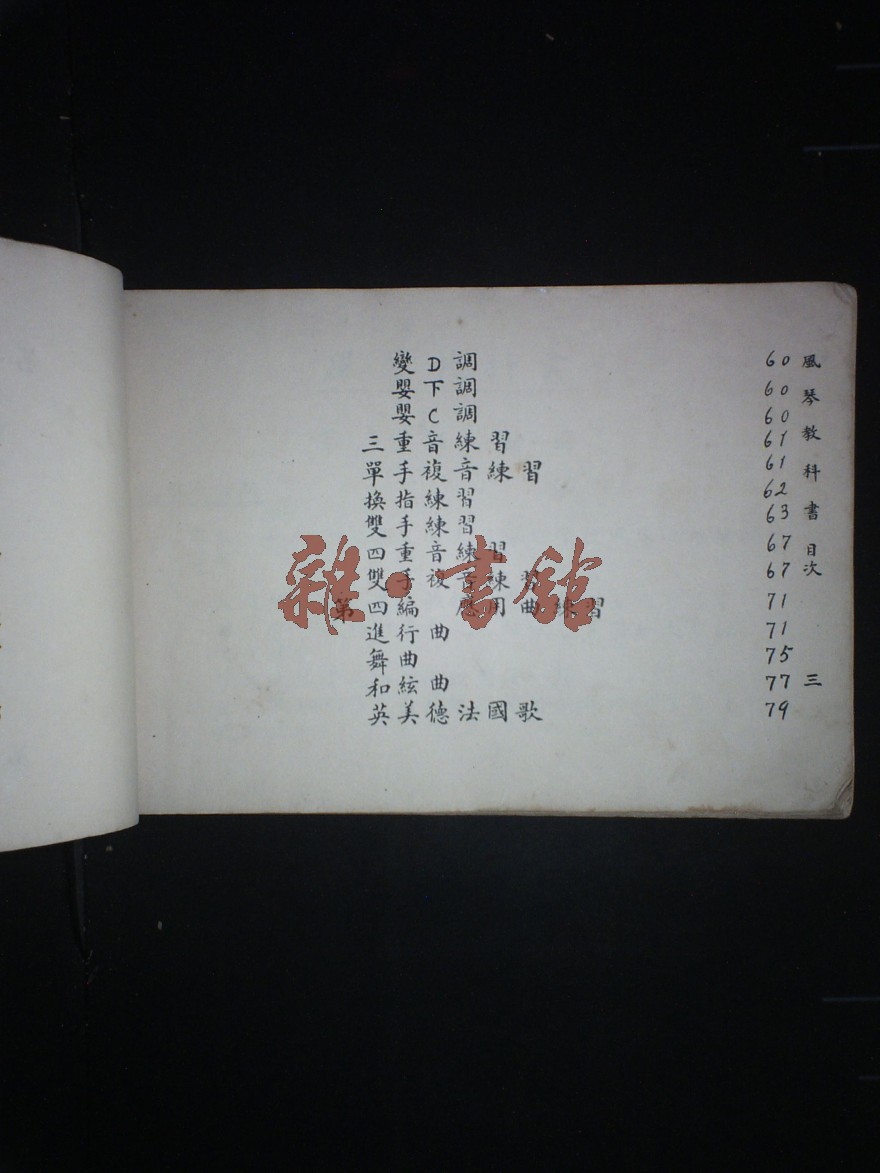 變D調 60
嬰F調 60
嬰C調 60
三重音練習 61
單手複音練習 61
換指練習 62
雙手練習 63
四重音練習 67
雙手複音練習 67
第四編應用曲練習 71
進行曲 71
舞曲 75
和絃曲 77
英美德法國歌 79
風琴教科書 目次 三
雜·書館